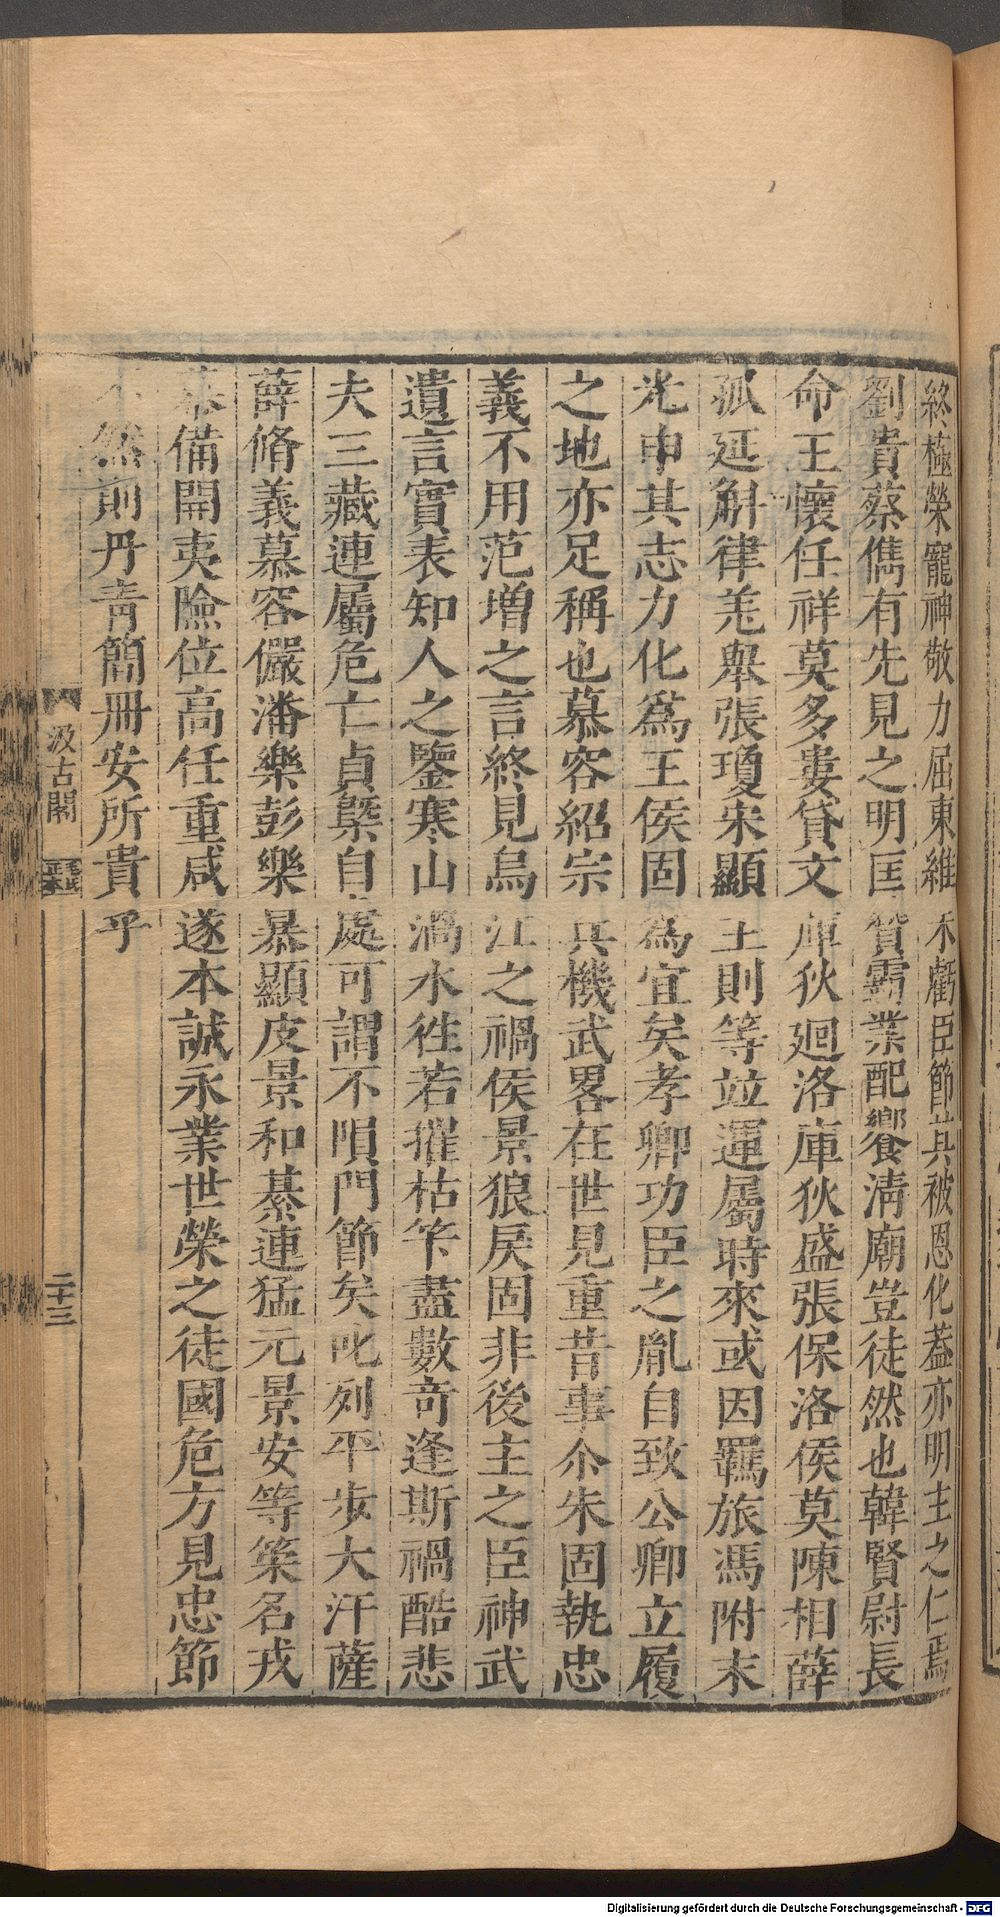 終極榮寵神敬力屈東維木虧臣節共被恩化葢亦明主之仁焉
劉貴蔡儁有先見之明匡贊霸業配饗淸廟豈徒然也韓賢尉長
命王懷任祥莫多婁貸文庫狄廻洛庫狄盛張保洛侯莫陳相薛
孤延斛律羌舉張瓊宋顯王則等竝運屬時來或因羈旅馮附末
光申其志力化爲王侯固爲宜矣孝卿功臣之胤自致公卿立履
之地亦足稱也慕容紹宗兵機武畧在世見重昔事尒朱固執忠
義不用范增之言終見烏江之禍侯景狼戾固非後主之臣神武
遺言實表知人之鑒寒山渦水徃若摧枯筭蓋數竒逢斯禍酷悲
夫三藏連屬危亡貞槩自處可謂不隕門節矣叱列平步大汗薩
薛脩義慕容儼潘樂彭樂暴顯皮景和綦連猛元景安等策名戎
幕備開夷險位高任重咸遂本誠永業世榮之徒國危方見忠節
然則丹靑簡冊安所貴乎
汲古閣
毛氏正本
二十三
Digitalisierung gefördert durch die Deutsche Forschungsgemeinschaft - DFG